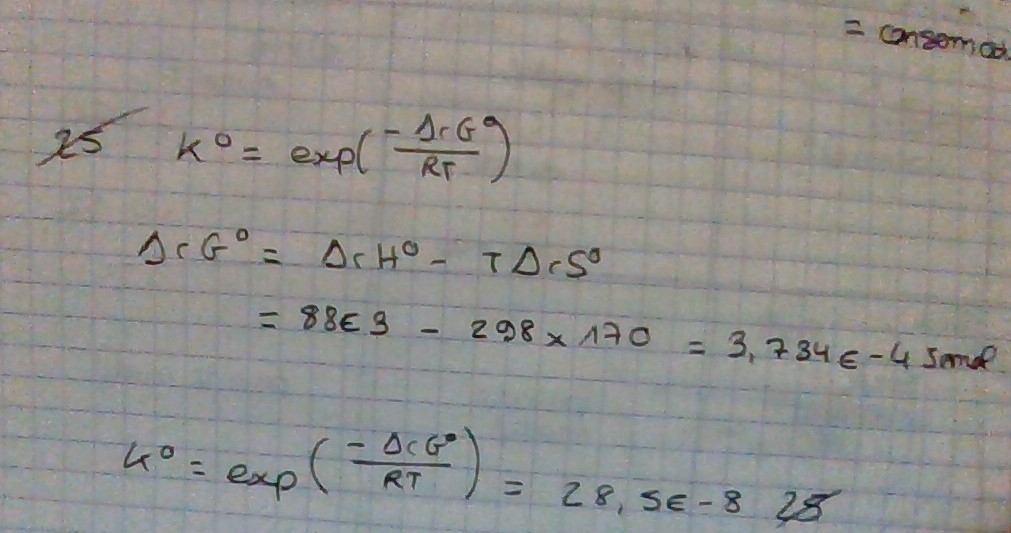 = consomm
25 K° = exp(-ΔrG° / RT)
ΔrG° = ΔrH° - TΔrS°
= 88E3 - 298 × 170 = 3,734E-4 Jmol
K° = exp(-ΔrG° / RT) = 28,5E-8 25